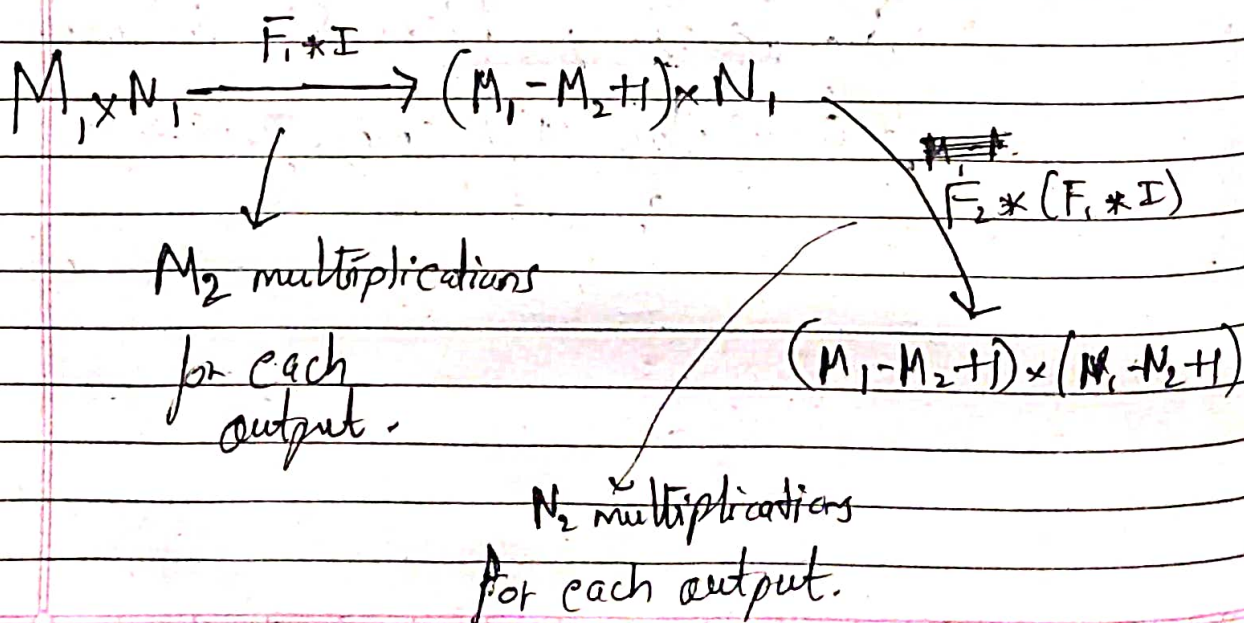 F₁ * I
M₁ × N₁ → (M₁ - M₂ + 1) × N₁
F₂ * (F₁ * I)
M₂ multiplications
for each
output.
(M₁ - M₂ + 1) × (N₁ - N₂ + 1)
N₂ multiplications
for each output.